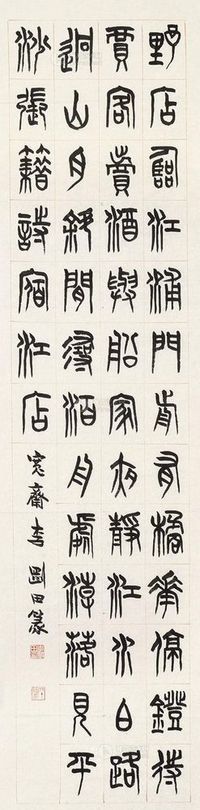 野店臨江浦門前有橘花停鐙待
賈客賣酒與船家夜靜江水白路
迥山月斜閒尋泊舟處潭落見平
沙張籍詩宿江店
寬齋李剛田篆